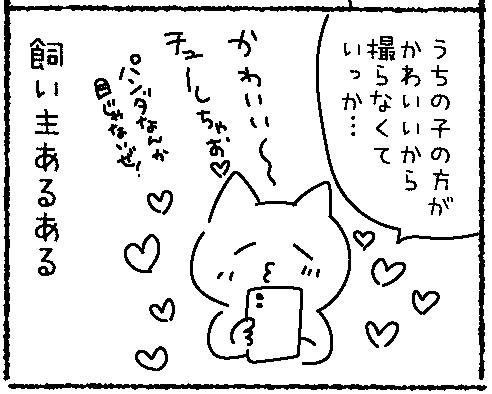 うちの子の方が
かわいいから
撮らなくて
いっか…
かわいい〜
チューしちゃお♡
パンダなんか
目じゃないぜ!
飼い主あるある